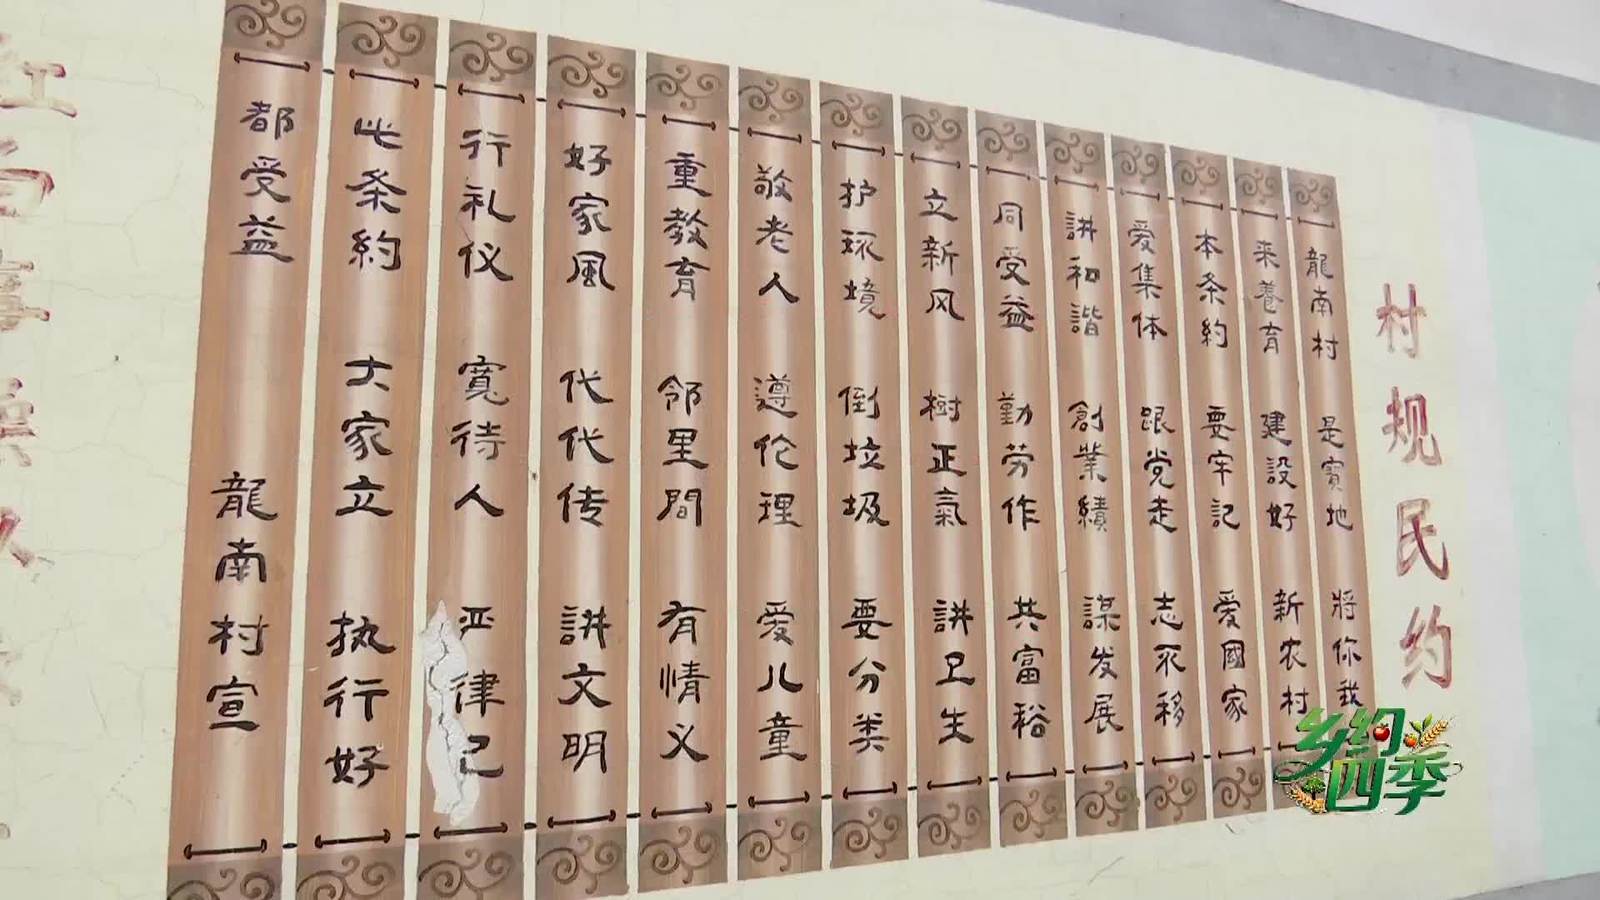 村规民约
龍南村 是寳地 將你我
来養育 建設好 新农村
本条約 要牢記 爱國家
爱集体 跟党走 志不移
講和諧 創業績 謀发展
同受益 勤劳作 共富裕
立新风 树正氣 讲卫生
护环境 倒垃圾 要分类
敬老人 遵伦理 爱儿童
重教育 邻里間 有情义
好家風 代代传 讲文明
行礼仪 寬待人 严律己
此条約 大家立 执行好
都受益 龍南村宣
乡约四季